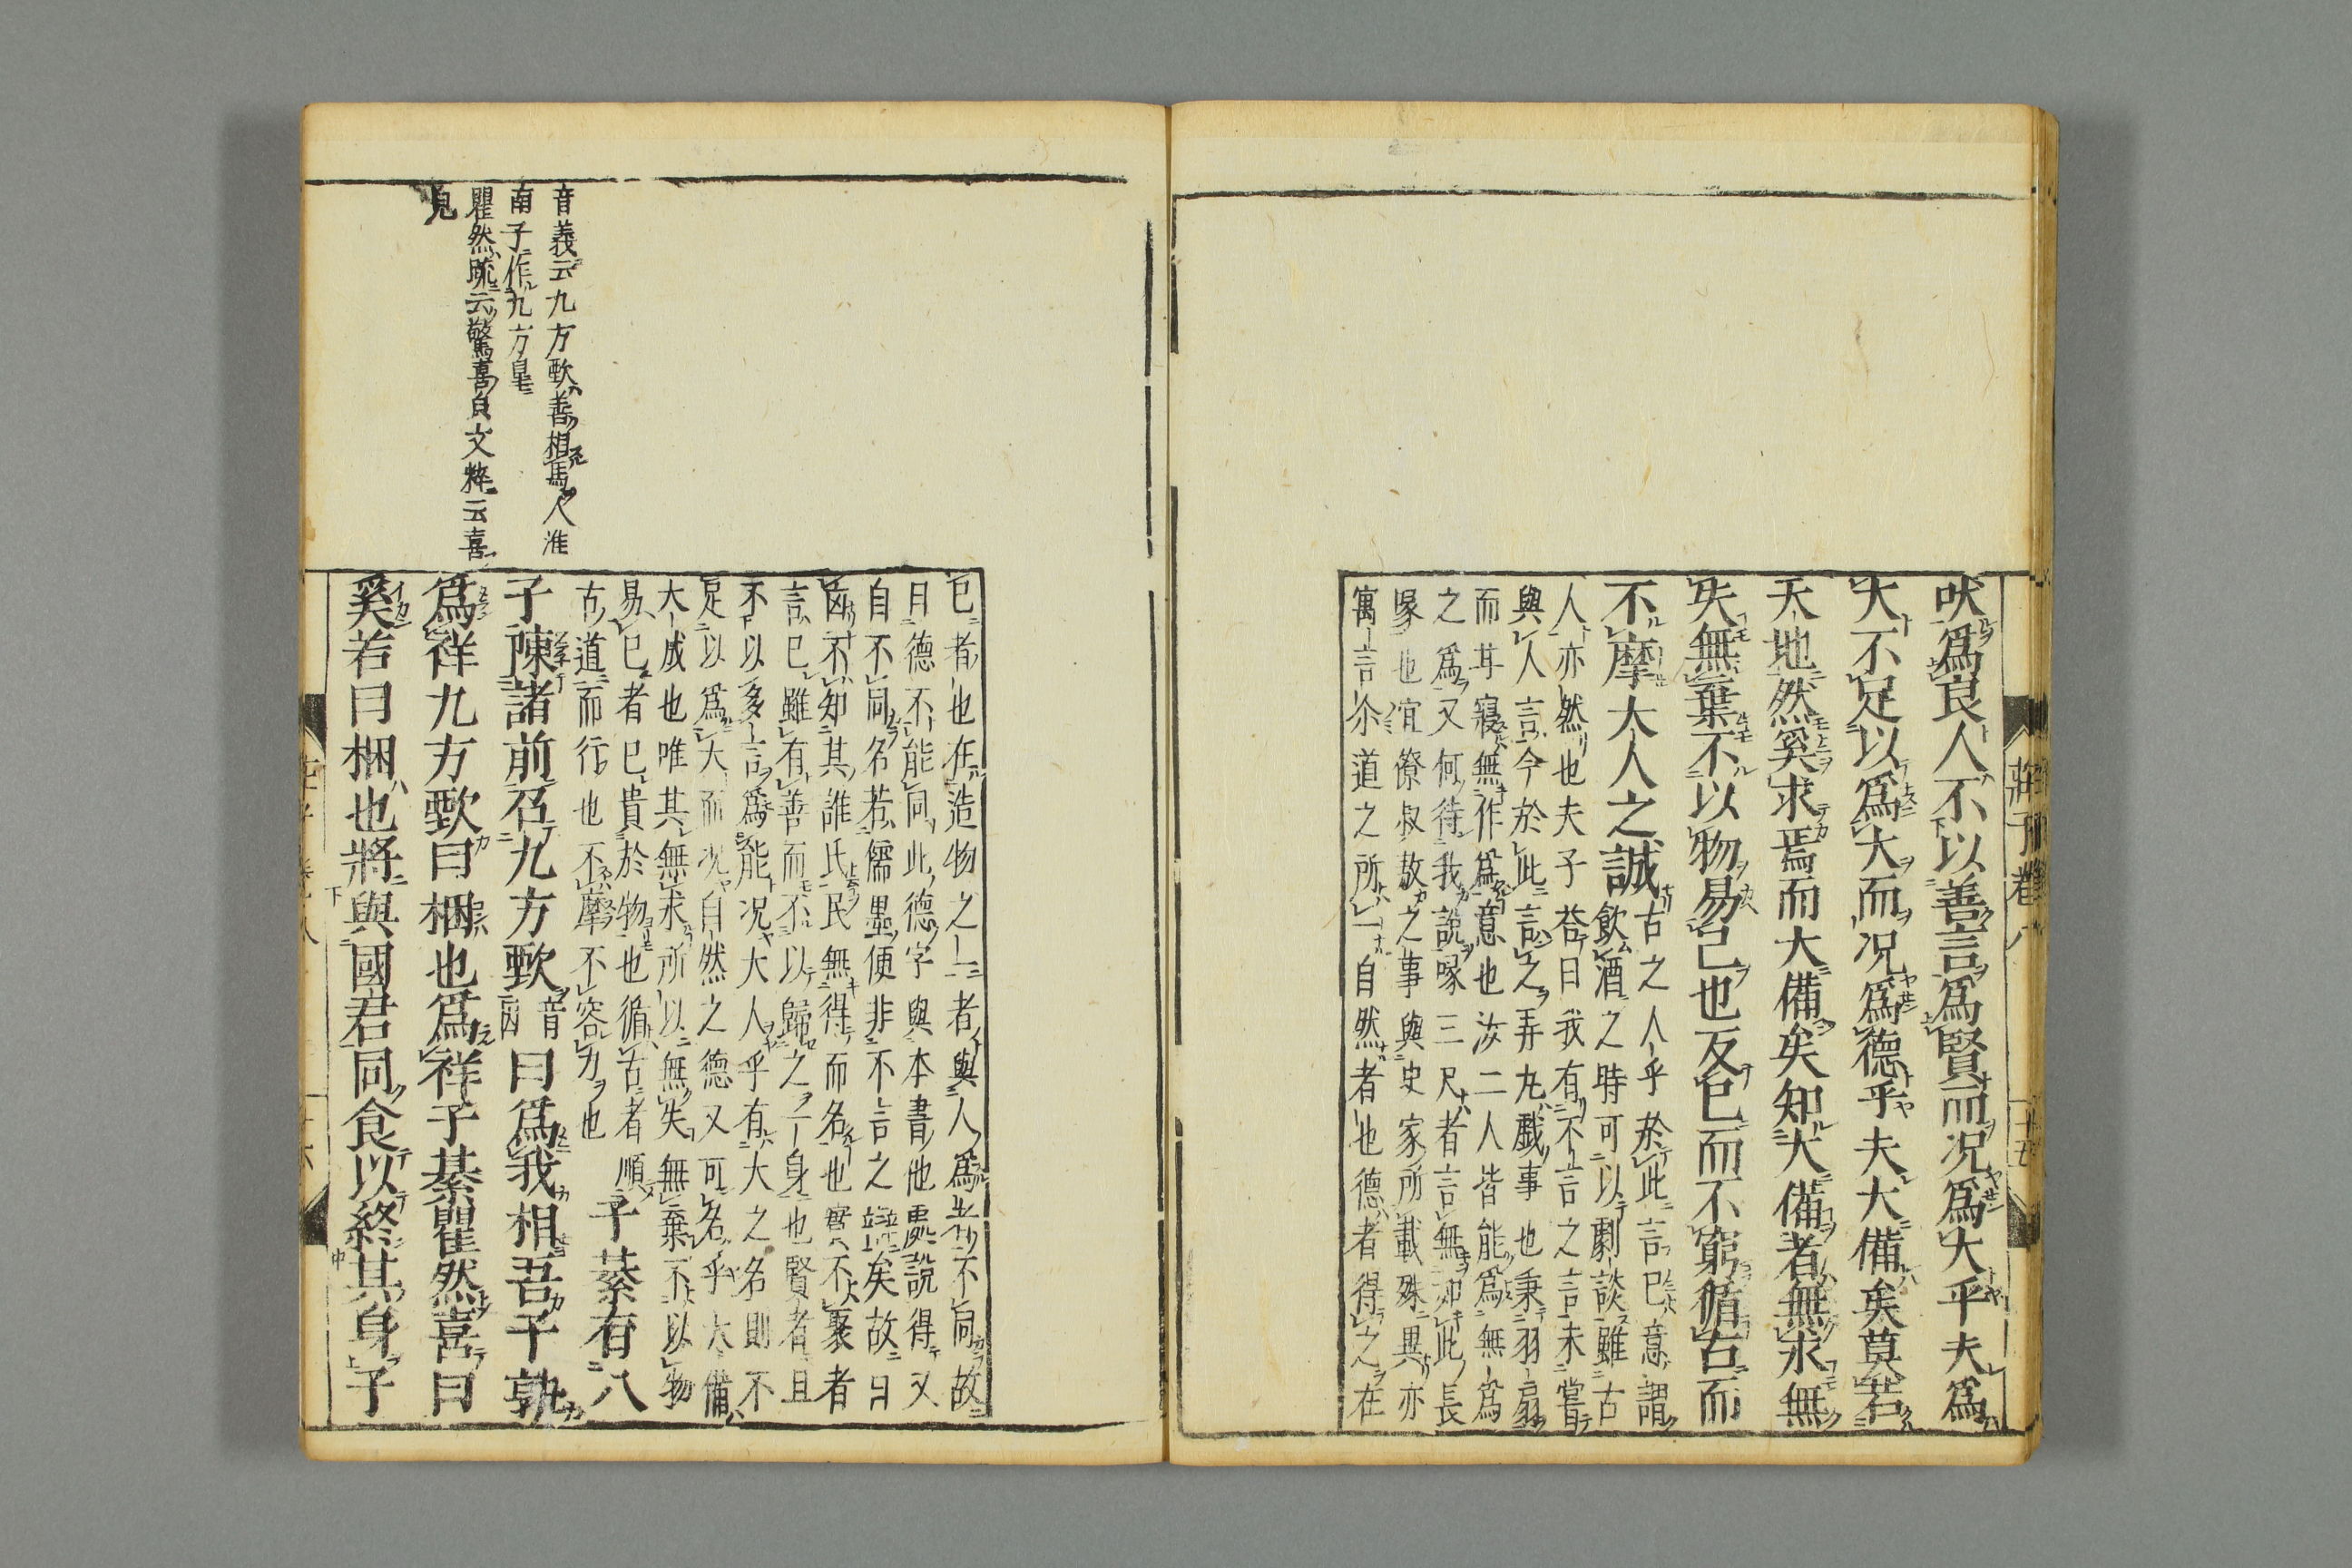 吠爲良人不以善言爲賢而况爲大乎夫爲
大不足以爲大而况爲德乎夫大備矣莫若
天地然奚求焉而大備矣知大備者無求無
失無棄不以物易己也反已而不窮循古而
不摩大人之誠
古之人乎於此言已意謂
飲酒之時可以劇談雖古
人亦然也夫子荅曰我有不言之言未嘗
與人言今於此言之弄丸戲事也秉羽扇
而耳寢無作爲意也汝二人皆能爲無爲
之爲又何待我說喙三尺者言無如此長
喙也宜僚叔敖之事與史家所載殊異亦
寓言尒道之所一自然者也德者得之在
已者也在造物之一者與人爲者不同故
曰德不能同此德字與本書他處說得又
自不同名若儒墨便非不言之辯矣故曰
凶不知其誰氏民無得而名也實不聚者
言已雖有善而不以歸之一身也賢者且
不以多言爲能况大人乎有大之名則不
足以爲大而况自然之德又可名乎大備
大成也唯其無求所以無失無棄不以物
易已者已貴於物也循古者順
古道而行也不摩不容力也
子綦有八
子陳諸前召九方歅音因曰爲我相吾子孰
爲祥九方歅曰梱也爲祥子綦瞿然喜曰
奚若曰梱也將與國君同食以終其身子
音義云九方歅善相馬人淮
南子作九方皐
瞿然疏云驚喜自文粹云喜
皃
莊子卷八
十五